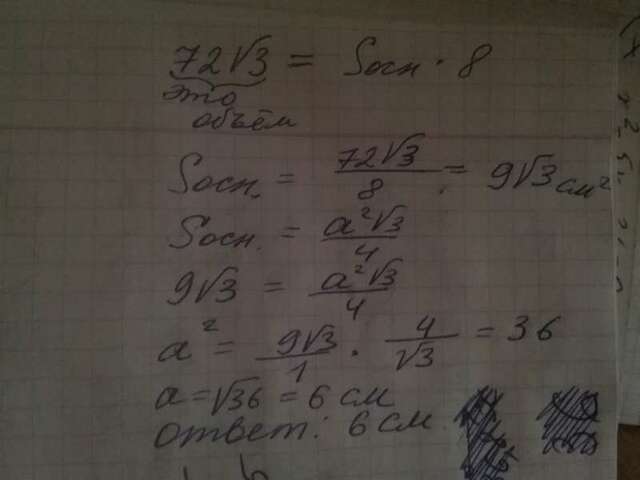 72√3 = Sосн · 8
это
объём
Sосн. = 72√3/8 = 9√3 см²
Sосн. = a²√3/4
9√3 = a²√3/4
a² = 9√3/1 · 4/√3 = 36
a = √36 = 6 см
ответ: 6 см